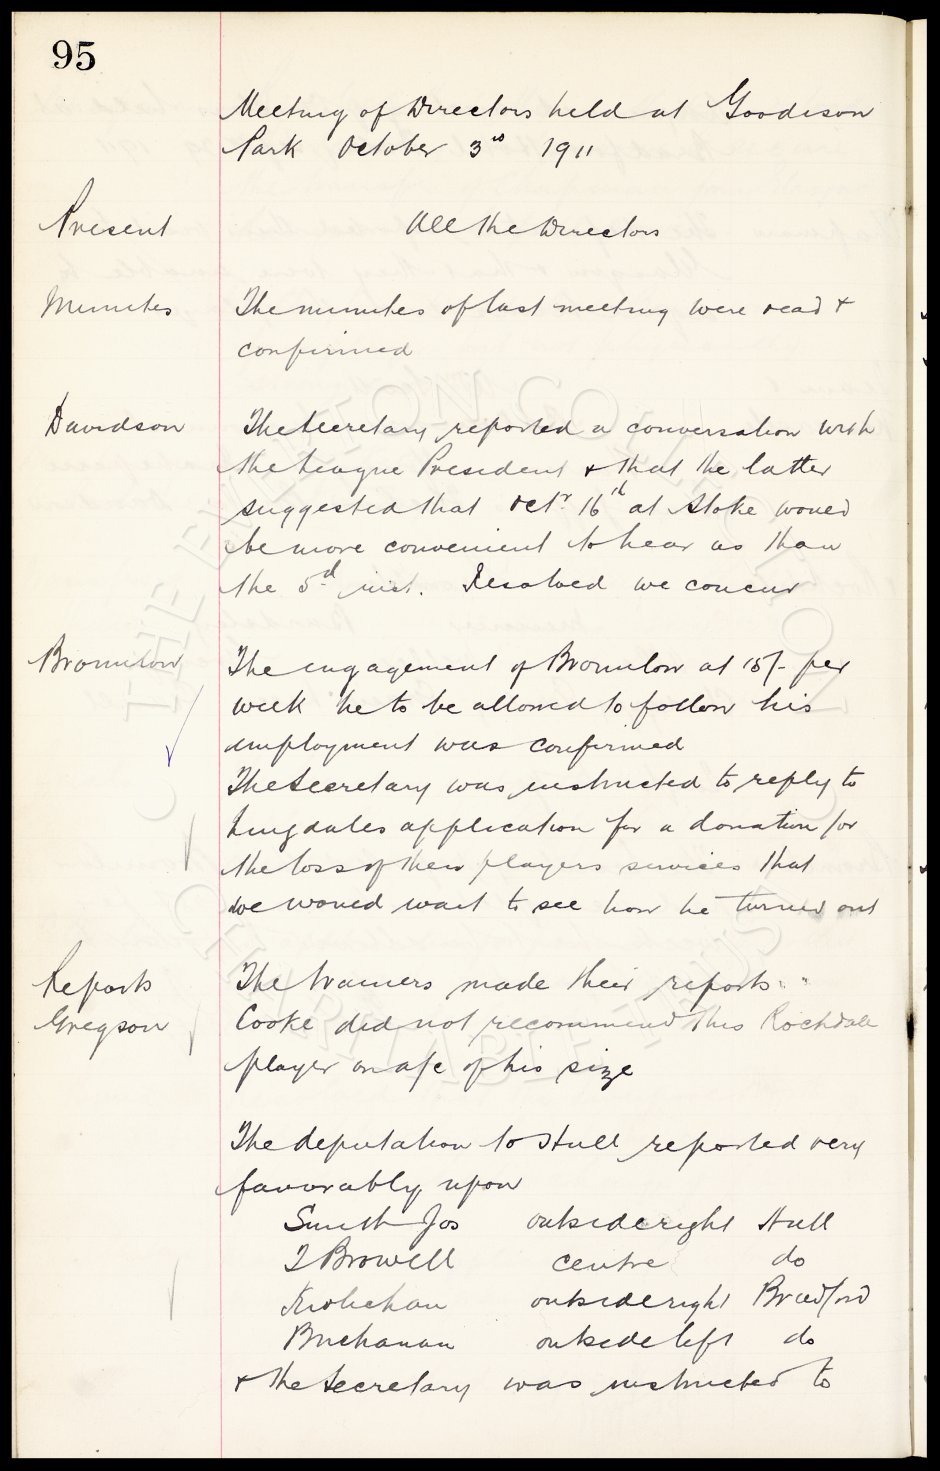 95
Meeting of Directors held at Goodison
Park October 3rd 1911
Present All the Directors
Minutes The minutes of last meeting were read &
confirmed
Davidson The Secretary reported a conversation with
the League President & that the latter
suggested that Octr 16th at Stoke would
be more convenient to hear us than
the 5th inst. Resolved we concur
Bromilow The engagement of Bromilow at 15/- per
week he to be allowed to follow his
employment was confirmed
The Secretary was instructed to reply to
Lingdales application for a donation for
the loss of their players services that
we would wait to see how he turned out
Reports The trainers made their reports.
Gregson Cooke did not recommend this Rochdale
player on a/c of his size
The deputation to Hull reported very
favorably upon
Smith Jos outside right Hull
T Browell centre do
outside right Bradford
Buchanan outside left do
& the Secretary was instructed to